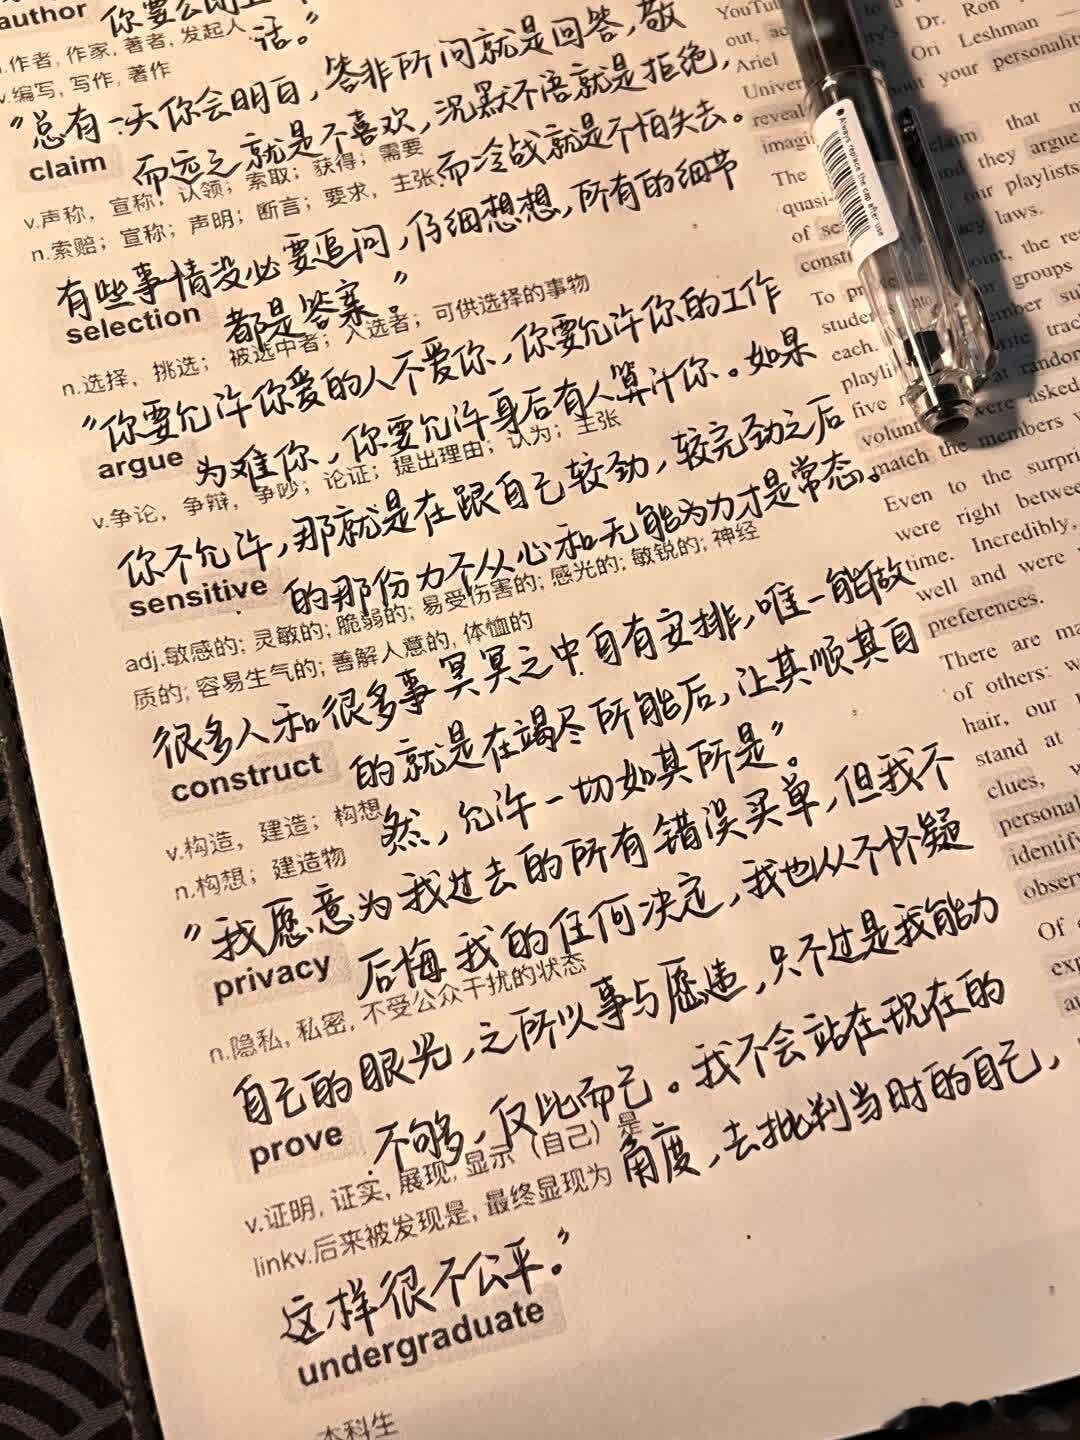 author
n.作者, 作家, 著者, 发起人
v.编写, 写作, 著作
话。”
“总有一天你会明白，答非所问就是回答，敬
claim
而远之就是不喜欢，沉默不语就是拒绝，
v.声称，宣称；认领；索取；获得；需要
n.索赔；宣称；声明；断言；要求，主张
而冷战就是不怕失去。
有些事情没必要追问，仔细想想，所有的细节
selection
都是答案。”
n.选择，挑选；被选中者；入选者；可供选择的事物
“你要允许你爱的人不爱你，你要允许你的工作
argue
为难你，你要允许身后有人算计你。如果
v.争论，争辩，争吵；论证；提出理由；认为；主张
你不允许，那就是在跟自己较劲，较完劲之后
sensitive
的那份力不从心和无能为力才是常态。
adj.敏感的; 灵敏的; 脆弱的; 易受伤害的; 感光的; 敏锐的; 神经
质的; 容易生气的; 善解人意的, 体恤的
很多人和很多事冥冥之中自有安排，唯一能做
construct
的就是在竭尽所能后，让其顺其自
v.构造，建造；构想
n.构想；建造物
然，允许一切如其所是”。
“我愿意为我过去的所有错误买单，但我不
privacy
后悔我的任何决定，我也从不怀疑
n.隐私, 私密, 不受公众干扰的状态
自己的眼光，之所以事与愿违，只不过是我能力
prove
不够，仅此而已。我不会站在现在的
v.证明, 证实, 展现, 显示（自己）是
linkv.后来被发现是, 最终显现为
角度，去批判当时的自己，
这样很不公平。”
undergraduate
本科生
YouTu
Dr. Ron
out, ac
Ori Leshman
Ariel
out your personalit
Univer
reveal
claim that
imagi
nd they argue
The
our playlists
quasi-
cy laws.
of se
const
oint, the res
To pr
or groups
studen
ember su
each.
ste trac
playli
at random
five
were asked
volunt
match the members
Even to the surpri
were right betwee
time. Incredibly,
well and were
preferences.
There are ma
of others: w
hair, our
stand at
clues, w
personal
identify
observ
Of
exp
au
Always replace the cap after use